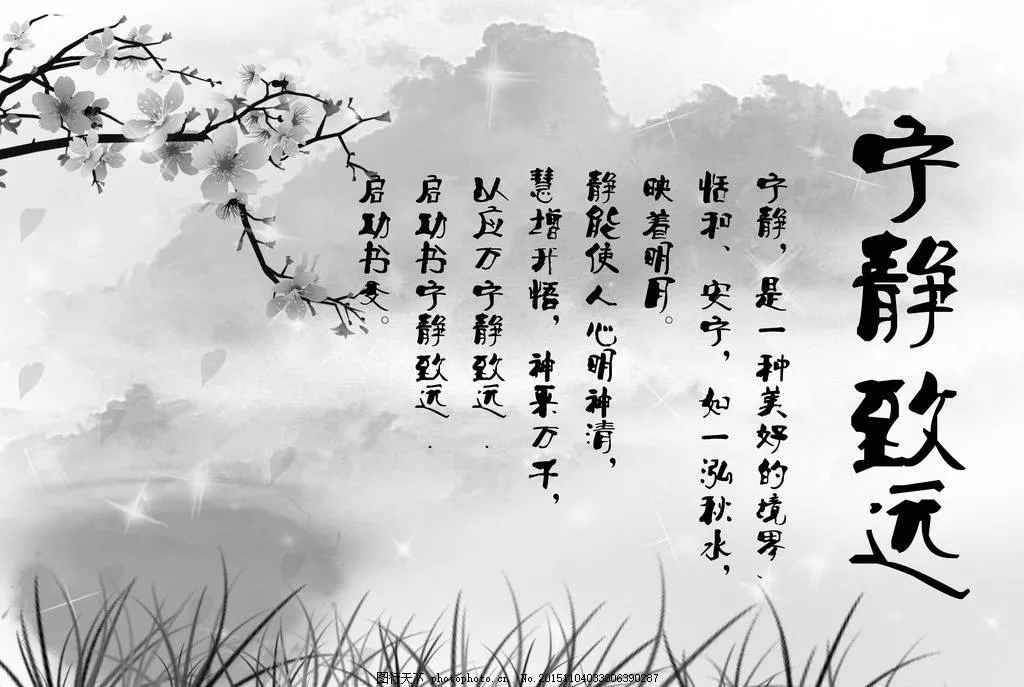 宁静致远
宁静，是一种美好的境界.
恬和、安宁，如一泓秋水，
映着明月。
静能使人心明神清，
慧增开悟，神采万千，
以应万宁静致远.
启功书宁静致远.
启功书变。
图行天下 photophoto.cn No.20151104033006390287